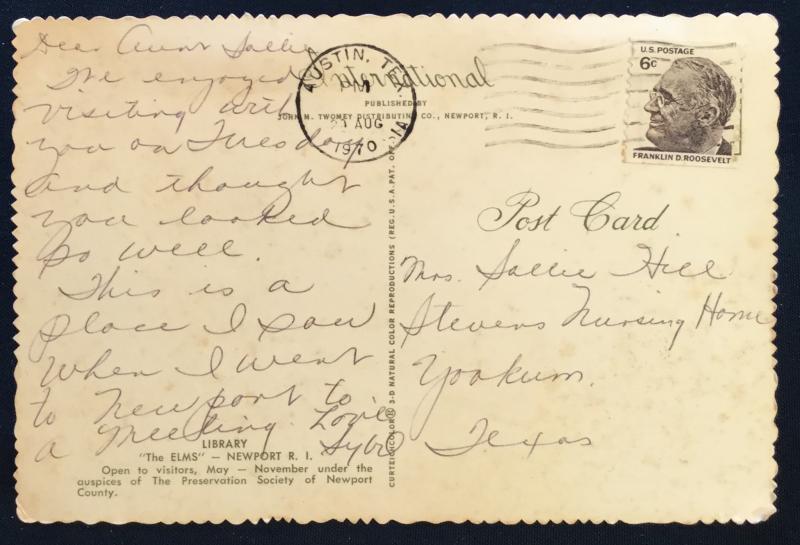 Dear Aunt Sallie,
We enjoyed
visiting with
you on Tuesday
and thought
you looked
so well.
This is a
place I saw
when I went
to Newport to
a meeting. Love
Sybil
LIBRARY
"The ELMS" — NEWPORT R. I.
Open to visitors, May — November under the
auspices of The Preservation Society of Newport
County.
International
PUBLISHED BY
JOHN M. TWOMEY DISTRIBUTING CO., NEWPORT, R. I.
AUSTIN, TEX
PM
AUG
1970
CURTEICHCOLOR® 3-D NATURAL COLOR REPRODUCTIONS (REG. U.S.A. PAT. OFF.
U.S. POSTAGE
6c
FRANKLIN D. ROOSEVELT
Post Card
Mrs. Sallie Hill
Stevens Nursing Home
Yoakum.
Texas